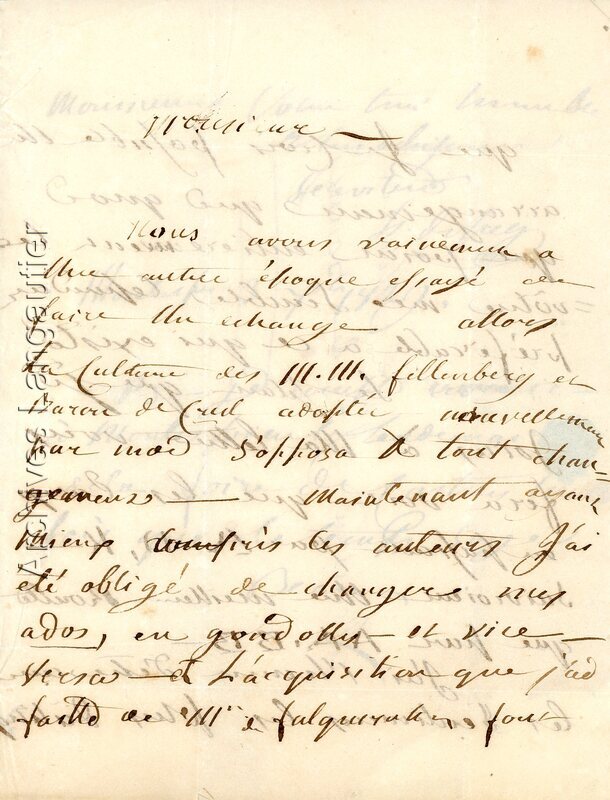 Monsieur
Nous avons vainement a
Une autre époque essayé de
faire Un echange allors
La Culture des M.M. fillenberg et
Baron de Crud adoptée nouvellement
par moi s'opposa a tout chan=
gement — Maintenant ayant
Mieux Compris les auteurs J'ai
eté obligé de changer mes
ados, en gondolles et vice
Versa — et L'acquisition que j'ai
faitte de Mr de falguerolles, font
Archives Langautier